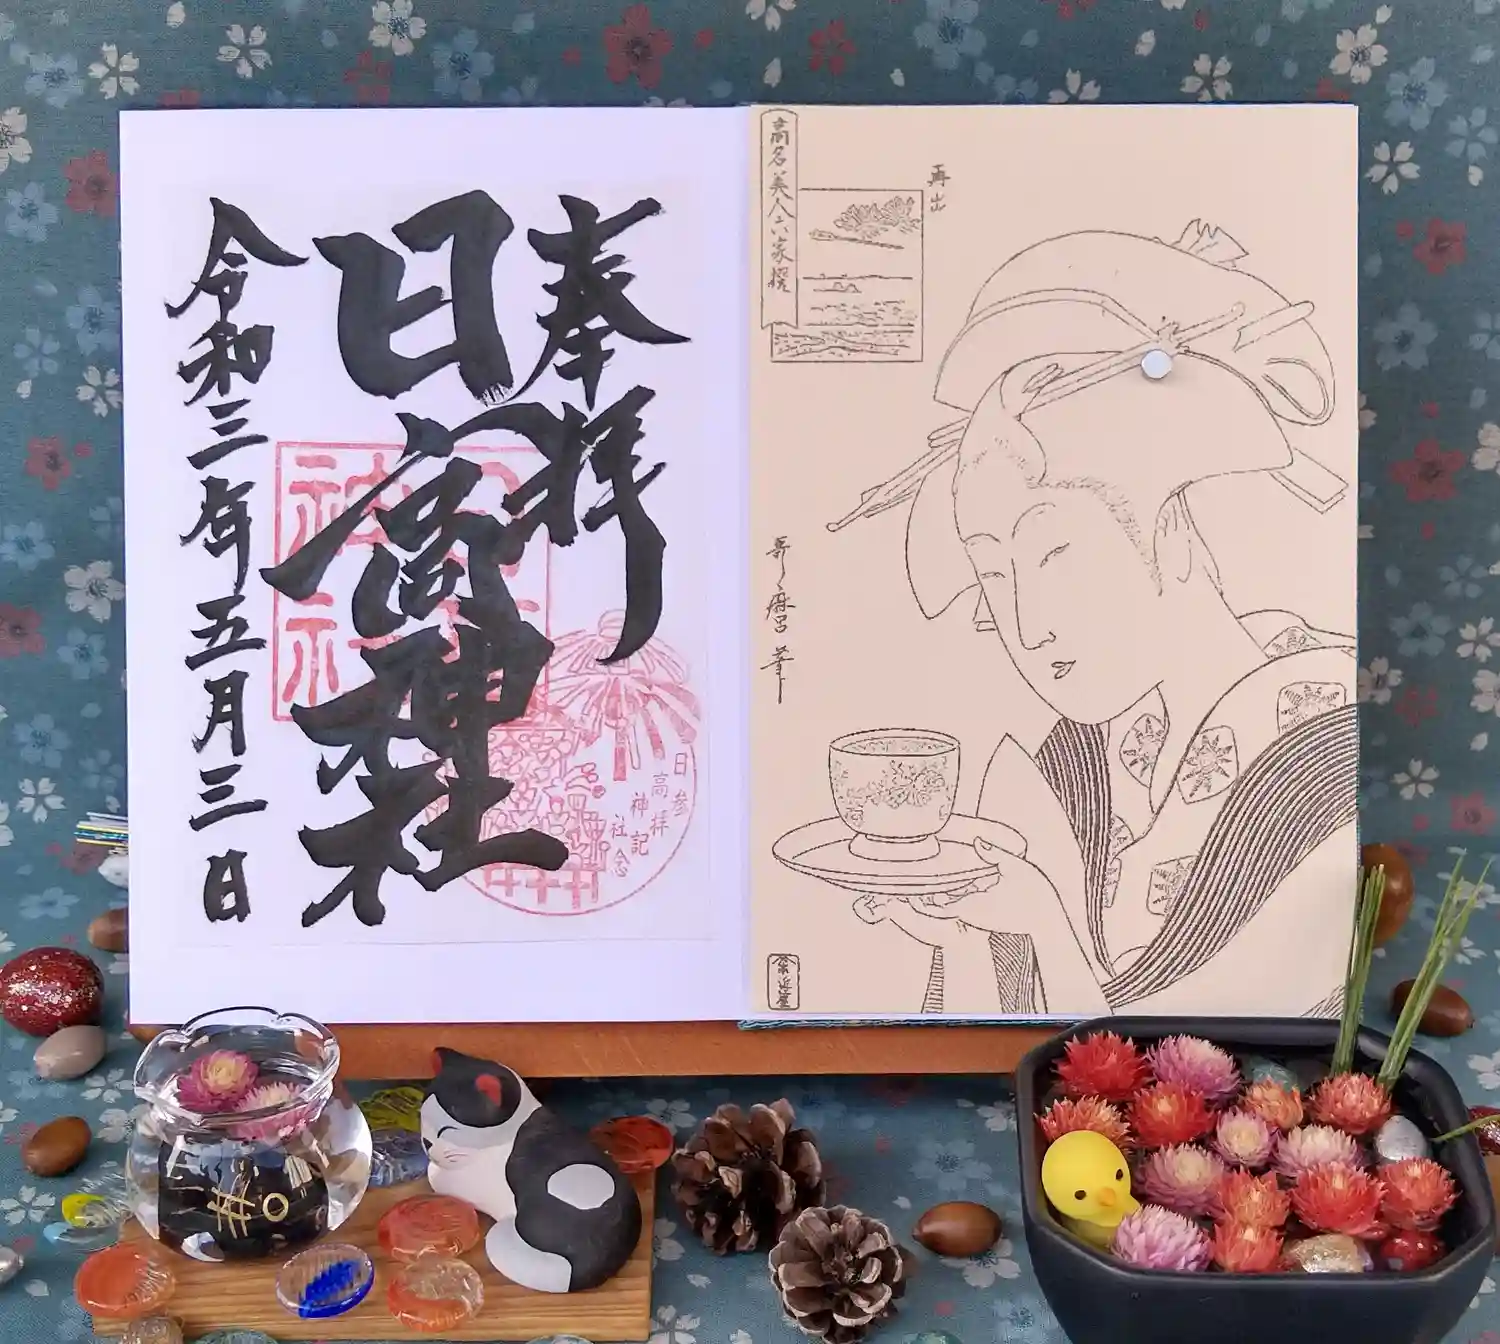 奉拝
日高神社
令和三年五月三日
日高神社
参拝記念
高名美人六家撰
再出
哥麿筆